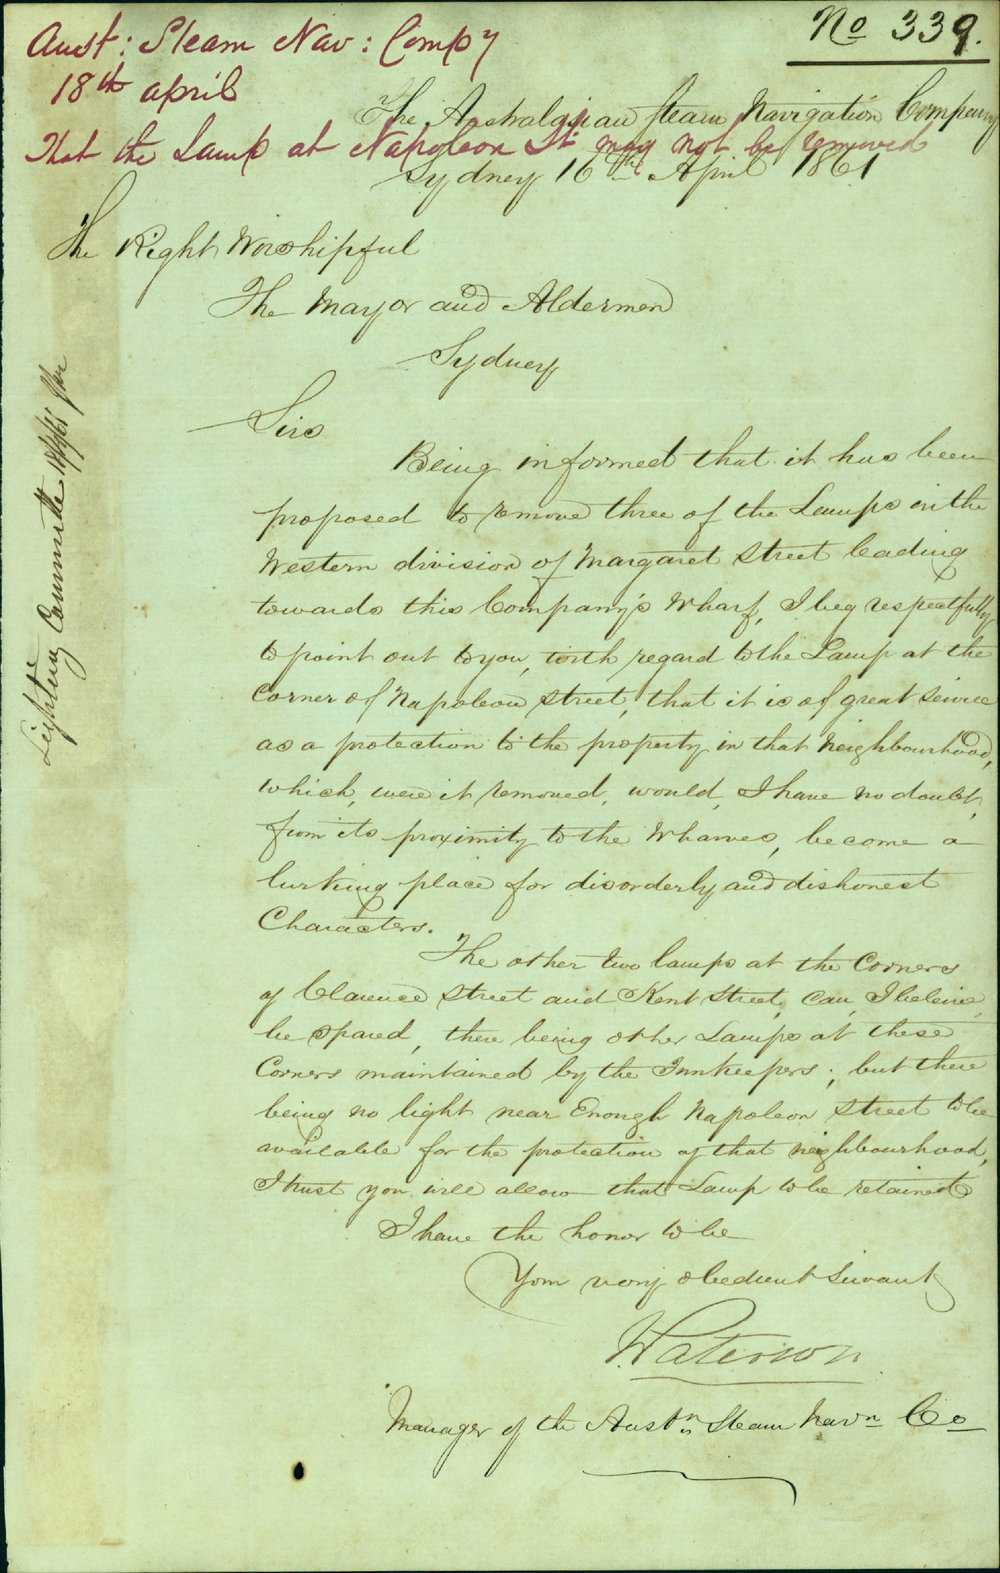 No 339.
Aust: Steam Nav: Compy
18th april
That the Lamp at Napoleon St may not be removed
The Australasian Steam Navigation Company
Sydney 16th April 1861
The Right Worshipful
The Mayor and Aldermen
Sydney
Sirs
Being informed that it has been
proposed to remove three of the Lamps in the
Western division of Margaret Street leading
towards this Company's Wharf, I beg respectfully
to point out to you, with regard to the Lamp at the
Corner of Napoleon Street, that it is of great service
as a protection to the property in that Neighbourhood,
which, were it removed, would, I have no doubt,
from its proximity to the Wharves, become a
lurking place for disorderly and dishonest
Characters.
The other two lamps at the Corners
of Clarence Street and Kent Street, can, I believe,
be spared, there being other Lamps at these
Corners maintained by the Innkeepers; but there
being no light near Enough Napoleon Street to be
available for the protection of that neighbourhood,
I trust you will allow that Lamp to be retained
I have the honor to be
Your very obedient Servant
Paterson
Manager of the Austn Steam Navn Co
Lighting Committee